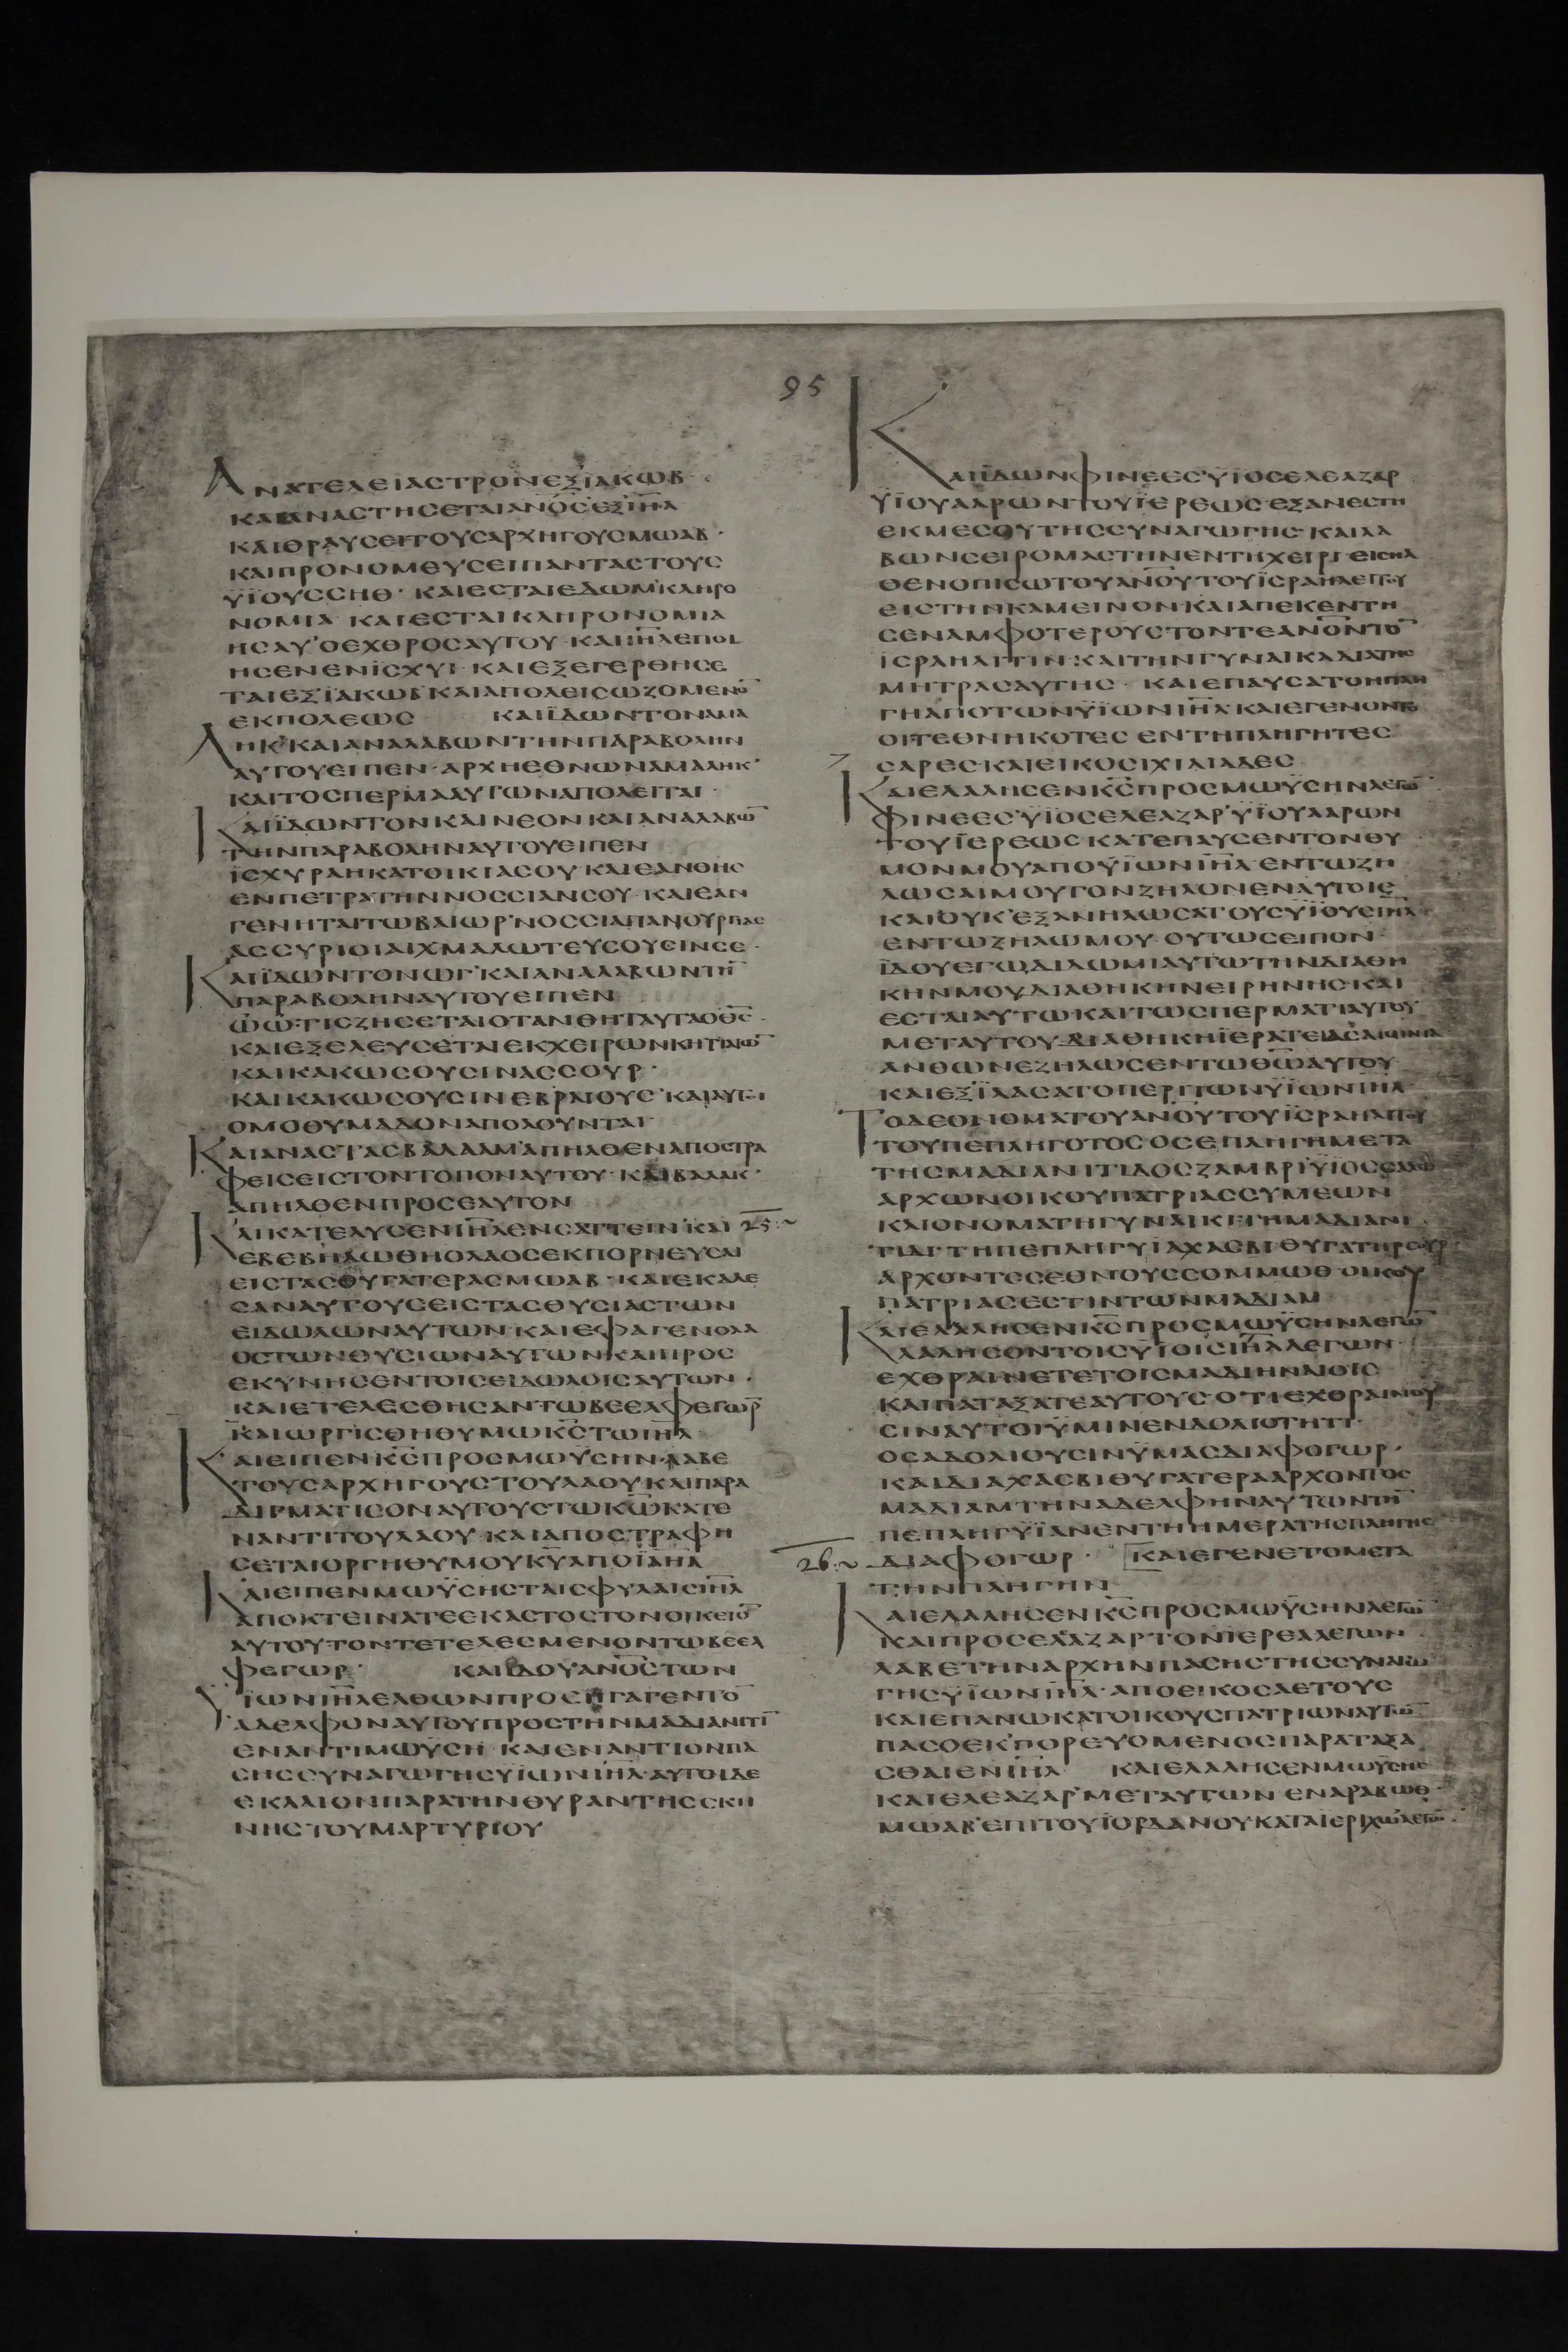 95
ΑΝΑΤΕΛΕΙΑΣΤΡΟΝΕΞΪΑΚΩΒ·
ΚΑΙΑΝΑΣΤΗΣΕΤΑΙΑΝΟΣΕΞΙΗΛ
ΚΑΙΘΡΑΥΣΕΙΤΟΥΣΑΡΧΗΓΟΥΣΜΩΑΒ·
ΚΑΙΠΡΟΝΟΜΕΥΣΕΙΠΑΝΤΑΣΤΟΥΣ
ΥΪΟΥΣΣΗΘ· ΚΑΙΕΣΤΑΙΕΔΩΜΚΛΗΡΟ
ΝΟΜΙΑ ΚΑΙΕΣΤΑΙΚΛΗΡΟΝΟΜΙΑ
ΗΣΑΥ ΟΕΧΘΡΟΣΑΥΤΟΥ· ΚΑΙΙΗΛΕΠΟΙ
ΗΣΕΝΕΝΪΣΧΥΙ· ΚΑΙΕΞΕΓΕΡΘΗΣΕ
ΤΑΙΕΞΪΑΚΩΒΚΑΙΑΠΟΛΕΙΣΩΖΟΜΕΝΟ̅
ΕΚΠΟΛΕΩΣ ΚΑΙΪΔΩΝΤΟΝΑΜΑ
ΛΗΚ ΚΑΙΑΝΑΛΑΒΩΝΤΗΝΠΑΡΑΒΟΛΗΝ
ΑΥΤΟΥΕΙΠΕΝ· ΑΡΧΗΕΘΝΩΝΑΜΑΛΗΚ·
ΚΑΙΤΟΣΠΕΡΜΑΑΥΤΩΝΑΠΟΛΕΙΤΑΙ·
ΚΑΙΪΔΩΝΤΟΝΚΑΙΝΕΟΝΚΑΙΑΝΑΛΑΒΩ̅
ΤΗΝΠΑΡΑΒΟΛΗΝΑΥΤΟΥΕΙΠΕΝ
ΪΣΧΥΡΑΗΚΑΤΟΙΚΙΑΣΟΥ ΚΑΙΕΑΝΘΗΣ
ΕΝΠΕΤΡΑΤΗΝΝΟΣΣΙΑΝΣΟΥ· ΚΑΙΕΑΝ
ΓΕΝΗΤΑΙΤΩΒΑΙΩΡ ΝΟΣΣΙΑΠΑΝΟΥΡΓΙΑΣ
ΑΣΣΥΡΙΟΙΑΙΧΜΑΛΩΤΕΥΣΟΥΣΙΝΣΕ·
ΚΑΙΪΔΩΝΤΟΝΩΓ ΚΑΙΑΝΑΛΑΒΩΝΤΗ̅
ΠΑΡΑΒΟΛΗΝΑΥΤΟΥΕΙΠΕΝ
ΩΩ ΤΙΣΖΗΣΕΤΑΙΟΤΑΝΘΗΤΑΥΤΑΟΘΣ
ΚΑΙΕΞΕΛΕΥΣΕΤΑΙΕΚΧΕΙΡΩΝΚΗΤΙΑΙΩ̅
ΚΑΙΚΑΚΩΣΟΥΣΙΝΑΣΣΟΥΡ·
ΚΑΙΚΑΚΩΣΟΥΣΙΝΕΒΡΑΙΟΥΣ ΚΑΙΑΥΤΟΙ
ΟΜΟΘΥΜΑΔΟΝΑΠΟΛΟΥΝΤΑΙ·
ΚΑΙΑΝΑΣΤΑΣΒΑΛΑΑΜΑΠΗΛΘΕΝΑΠΟΣΤΡΑ
ΦΕΙΣΕΙΣΤΟΝΤΟΠΟΝΑΥΤΟΥ· ΚΑΙΒΑΛΑΚ·
ΑΠΗΛΘΕΝΠΡΟΣΕΑΥΤΟΝ
ΚΑΙΚΑΤΕΛΥΣΕΝΙΗΛΕΝΣΑΤΤΕΙΝ ΚΑΙ 25
ΕΒΕΒΗΛΩΘΗΟΛΑΟΣΕΚΠΟΡΝΕΥΣΑΙ
ΕΙΣΤΑΣΘΥΓΑΤΕΡΑΣΜΩΑΒ· ΚΑΙΕΚΑΛΕ
ΣΑΝΑΥΤΟΥΣΕΙΣΤΑΣΘΥΣΙΑΣΤΩΝ
ΕΙΔΩΛΩΝΑΥΤΩΝ·ΚΑΙΕΦΑΓΕΝΟΛΑ
ΟΣΤΩΝΘΥΣΙΩΝΑΥΤΩΝΚΑΙΠΡΟΣ
ΕΚΥΝΗΣΕΝΤΟΙΣΕΙΔΩΛΟΙΣΑΥΤΩΝ·
ΚΑΙΕΤΕΛΕΣΘΗΣΑΝΤΩΒΕΕΛΦΕΓΩΡ
ΚΑΙΩΡΓΙΣΘΗΘΥΜΩΚΣΤΩΙΗΛ·
ΚΑΙΕΙΠΕΝΚΣΠΡΟΣΜΩΫΣΗΝ·ΛΑΒΕ
ΤΟΥΣΑΡΧΗΓΟΥΣΤΟΥΛΑΟΥΚΑΙΠΑΡΑ
ΔΙΓΜΑΤΙΣΟΝΑΥΤΟΥΣΤΩΚΩΚΑΤΕ
ΝΑΝΤΙΤΟΥΛΑΟΥ· ΚΑΙΑΠΟΣΤΡΑΦΗ
ΣΕΤΑΙΟΡΓΗΘΥΜΟΥΚΥΑΠΟΪΗΛ
ΚΑΙΕΙΠΕΝΜΩΫΣΗΣΤΑΙΣΦΥΛΑΙΣΙΗΛ
ΑΠΟΚΤΕΙΝΑΤΕΕΚΑΣΤΟΣΤΟΝΟΙΚΕΙΟ̅
ΑΥΤΟΥΤΟΝΤΕΤΕΛΕΣΜΕΝΟΝΤΩΒΕΕΛ
ΦΕΓΩΡ· ΚΑΙΪΔΟΥΑΝΟΣΤΩΝ
ΥΪΩΝΙΗΛΕΛΘΩΝΠΡΟΣΗΓΑΓΕΝΤΟ̅
ΑΔΕΛΦΟΝΑΥΤΟΥΠΡΟΣΤΗΝΜΑΔΙΑΝΙΤΙ̅
ΕΝΑΝΤΙΜΩΫΣΗ· ΚΑΙΕΝΑΝΤΙΟΝΠΑ
ΣΗΣΣΥΝΑΓΩΓΗΣΥΪΩΝΙΗΛ·ΑΥΤΟΙΔΕ
ΕΚΛΑΙΟΝΠΑΡΑΤΗΝΘΥΡΑΝΤΗΣΣΚΗ
ΝΗΣΤΟΥΜΑΡΤΥΡΙΟΥ
ΚΑΙΪΔΩΝΦΙΝΕΕΣΥΪΟΣΕΛΕΑΖΑΡ
ΥΪΟΥΑΑΡΩΝΤΟΥΪΕΡΕΩΣ·ΕΞΑΝΕΣΤΗ
ΕΚΜΕΣΟΥΤΗΣΣΥΝΑΓΩΓΗΣ· ΚΑΙΛΑ
ΒΩΝΣΕΙΡΟΜΑΣΤΗΝΕΝΤΗΧΕΙΡΙ ΕΙΣΗΛ
ΘΕΝΟΠΙΣΩΤΟΥΑΝΟΥΤΟΥΪΣΡΑΗΛΕΙΤΟΥ
ΕΙΣΤΗΝΚΑΜΕΙΝΟΝΚΑΙΑΠΕΚΕΝΤΗ
ΣΕΝΑΜΦΟΤΕΡΟΥΣΤΟΝΤΕΑΝΟΝΤΟ̅
ΪΣΡΑΗΛΙΤΙΝ·ΚΑΙΤΗΝΓΥΝΑΙΚΑΔΙΑΤΗΣ
ΜΗΤΡΑΣΑΥΤΗΣ· ΚΑΙΕΠΑΥΣΑΤΟΗΠΛΗ
ΓΗΑΠΟΤΩΝΥΪΩΝΙΗΛ·ΚΑΙΕΓΕΝΟΝΤΟ
ΟΙΤΕΘΝΗΚΟΤΕΣ ΕΝΤΗΠΛΗΓΗΤΕΣ
ΣΑΡΕΣ·ΚΑΙΕΙΚΟΣΙΧΙΛΙΑΔΕΣ
ΚΑΙΕΛΑΛΗΣΕΝΚΣΠΡΟΣΜΩΫΣΗΝΛΕΓΩ̅
ΦΙΝΕΕΣΥΪΟΣΕΛΕΑΖΑΡΥΪΟΥΑΑΡΩΝ
ΤΟΥΪΕΡΕΩΣ ΚΑΤΕΠΑΥΣΕΝΤΟΝΘΥ
ΜΟΝΜΟΥΑΠΟΥΪΩΝΙΗΛ ΕΝΤΩΖΗ
ΛΩΣΑΙΜΟΥΤΟΝΖΗΛΟΝΕΝΑΥΤΟΙΣ
ΚΑΙΟΥΚΕΞΑΝΗΛΩΣΑΤΟΥΣΥΪΟΥΣΙΗΛ
ΕΝΤΩΖΗΛΩΜΟΥ· ΟΥΤΩΣΕΙΠΟΝ·
ΪΔΟΥΕΓΩΔΙΔΩΜΙΑΥΤΩΤΗΝΔΙΑΘΗ
ΚΗΝΜΟΥΔΙΑΘΗΚΗΝΕΙΡΗΝΗΣ·ΚΑΙ
ΕΣΤΑΙΑΥΤΩΚΑΙΤΩΣΠΕΡΜΑΤΙΑΥΤΟΥ
ΜΕΤΑΥΤΟΥΔΙΑΘΗΚΗΪΕΡΑΤΕΙΑΣΑΙΩΝΙΑ
ΑΝΘΩΝΕΖΗΛΩΣΕΝΤΩΘΩΑΥΤΟΥ·
ΚΑΙΕΞΪΛΑΣΑΤΟΠΕΡΙΤΩΝΥΪΩΝΙΗΛ·
ΤΟΔΕΟΝΟΜΑΤΟΥΑΝΟΥΤΟΥΪΣΡΑΗΛΙΤΟΥ
ΤΟΥΠΕΠΛΗΓΟΤΟΣ ΟΣΕΠΛΗΓΗΜΕΤΑ
ΤΗΣΜΑΔΙΑΝΙΤΙΔΟΣΖΑΜΒΡΙΥΪΟΣΣΑΛΩ
ΑΡΧΩΝΟΙΚΟΥΠΑΤΡΙΑΣΣΥΜΕΩΝ
ΚΑΙΟΝΟΜΑΤΗΓΥΝΑΙΚΙΤΗΜΑΔΙΑΝΙ
ΤΙΔΙΤΗΠΕΠΛΗΓΥΪΑΧΑΣΒΙ·ΘΥΓΑΤΗΡΣΟΥΡ
ΑΡΧΟΝΤΟΣΕΘΝΟΥΣΣΟΜΜΩΘ ΟΙΚΟΥ
ΠΑΤΡΙΑΣΕΣΤΙΝΤΩΝΜΑΔΙΑΜ
ΚΑΙΕΛΑΛΗΣΕΝΚΣΠΡΟΣΜΩΫΣΗΝΛΕΓΩ̅
ΛΑΛΗΣΟΝΤΟΙΣΥΪΟΙΣΙΗΛΛΕΓΩΝ·
ΕΧΘΡΑΙΝΕΤΕΤΟΙΣΜΑΔΙΗΝΑΙΟΙΣ
ΚΑΙΠΑΤΑΞΑΤΕΑΥΤΟΥΣΟΤΙΕΧΘΡΑΙΝΟΥ
ΣΙΝΑΥΤΟΙΫΜΙΝΕΝΔΟΛΙΟΤΗΤΙ·
ΟΣΑΔΟΛΙΟΥΣΙΝΫΜΑΣΔΙΑΦΟΓΩΡ·
ΚΑΙΔΙΑΧΑΣΒΙΘΥΓΑΤΕΡΑΑΡΧΟΝΤΟΣ
ΜΑΔΙΑΜΤΗΝΑΔΕΛΦΗΝΑΥΤΩΝΤΗ̅
ΠΕΠΛΗΓΥΪΑΝΕΝΤΗΗΜΕΡΑΤΗΣΠΛΗΓΗΣ
26 ΔΙΑΦΟΓΩΡ· ΚΑΙΕΓΕΝΕΤΟΜΕΤΑ
ΤΗΝΠΛΗΓΗΝ
ΚΑΙΕΛΑΛΗΣΕΝΚΣΠΡΟΣΜΩΫΣΗΝΛΕΓΩ̅
ΚΑΙΠΡΟΣΕΛΕΑΖΑΡΤΟΝΪΕΡΕΑΛΕΓΩΝ
ΛΑΒΕΤΗΝΑΡΧΗΝΠΑΣΗΣΤΗΣΣΥΝΑΓΩ
ΓΗΣΥΪΩΝΙΗΛ·ΑΠΟΕΙΚΟΣΑΕΤΟΥΣ
ΚΑΙΕΠΑΝΩΚΑΤΟΙΚΟΥΣΠΑΤΡΙΩΝΑΥΤΩ̅
ΠΑΣΟΕΚΠΟΡΕΥΟΜΕΝΟΣΠΑΡΑΤΑΞΑ
ΣΘΑΙΕΝΙΗΛ ΚΑΙΕΛΑΛΗΣΕΝΜΩΫΣΗΣ
ΚΑΙΕΛΕΑΖΑΡΜΕΤΑΥΤΩΝ ΕΝΑΡΑΒΩΘ
ΜΩΑΒ ΕΠΙΤΟΥΪΟΡΔΑΝΟΥΚΑΤΑΙΕΡΙΧΩΛΕΓΩ̅